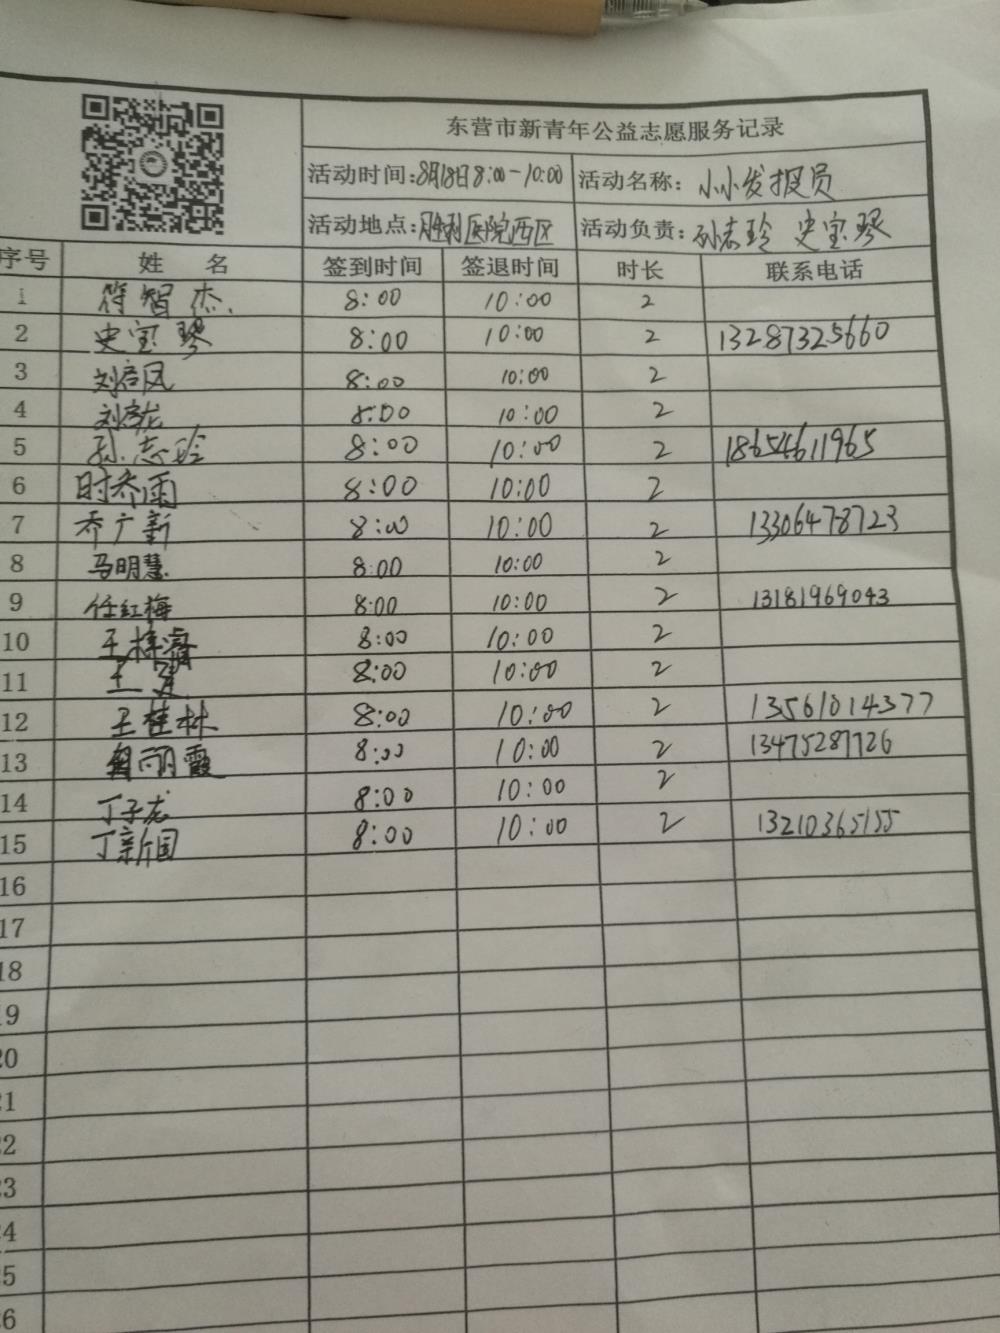 东营市新青年公益志愿服务记录
活动时间:8月18日8:00-10:00 活动名称: 小小发报员
活动地点:胜利医院西区 活动负责:孙志玲 史宝琴
序号 姓 名 签到时间 签退时间 时长 联系电话
1 符智杰 8:00 10:00 2
2 史宝琴 8:00 10:00 2 13287325660
3 刘启凤 8:00 10:00 2
4 8:00 10:00 2
5 孙志玲 8:00 10:00 2 18654611965
6 时乔雨 8:00 10:00 2
7 乔广新 8:00 10:00 2 13306478723
8 马明慧 8:00 10:00 2
9 任红梅 8:00 10:00 2 13181969043
10 王 8:00 10:00 2
11 王 8:00 10:00 2
12 王桂林 8:00 10:00 2 13561014377
13 丽霞 8:00 10:00 2 13475287726
14 丁子龙 8:00 10:00 2
15 丁新国 8:00 10:00 2 13210365155
16
17
18
19
20
21
22
23
24
25
26